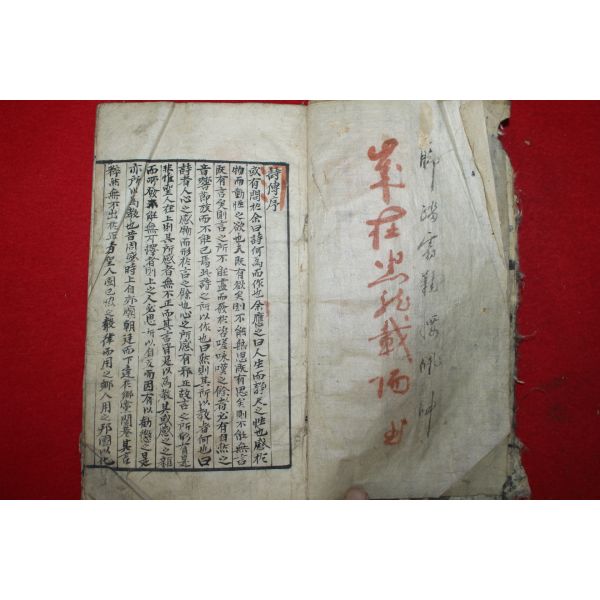 歲在
詩傳序
或有問於余曰詩何爲而作也余應之曰人生而靜天之性也感於
物而動性之欲也夫既有欲矣則不能無思既有思矣則不能無言
既有言矣則言之所不能盡而發於咨嗟咏嘆之餘者必有自然之
音響節族而不能已焉此詩之所以作也曰然則其所以敎者何也曰
詩者人心之感物而形於言之餘也心之所感有邪正故言之所形有是
非惟聖人在上則其所感者無不正而其言皆足以爲敎其或感之之雜
而所發不能無可擇者則上之人必思所以自反而因有以勸懲之是
亦所以爲敎也昔周盛時上自郊廟朝廷而下達於鄉黨閭巷其言
粹然無不出於正者聖人固已協之聲律而用之鄉人用之邦國以化